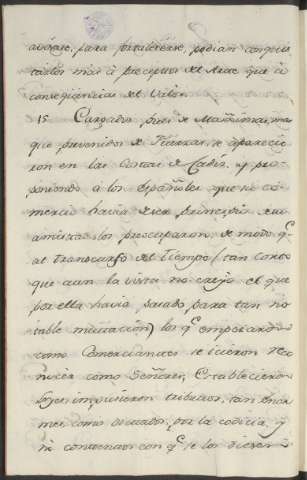 para fortalecerse, podian conquis
tarlos mas à preceptos del Arte que à
conseqüencias del Valor.
15 Cargados pues de Maximas, mas
que prevenidos de Fuerzas, se aparecie
ron en las Costas de Cadiz, y pro
poniendo à los Españoles que su co
mercio havia de ser principio de su
amistad, los preocuparon, de modo q.
al transcurso del Tiempo (tan corto
que aun la vista no creyò el que
por ella havia pasado, para tan no
table mutacion) los q. empezaron
como Comerciantes se icieron reco
nocer como Señores, Establecieron
Leyes impusieron tributos, tan enor
mes como dictados, por la codicia, y
no contentos con q. se los dieren